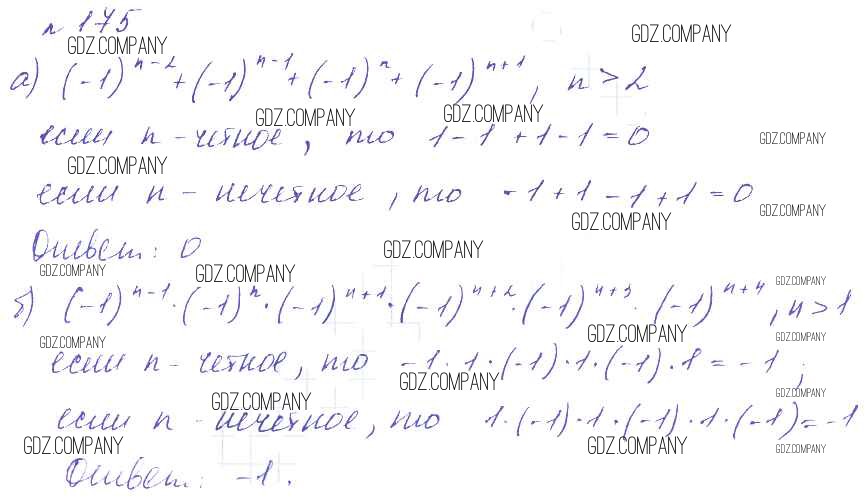 n 175
GDZ.COMPANY GDZ.COMPANY
а) (-1)^{n-2} + (-1)^{n-1} + (-1)^{n} + (-1)^{n+1}, n > 2
GDZ.COMPANY GDZ.COMPANY
если n - четное, то 1 - 1 + 1 - 1 = 0 GDZ.COMPANY
GDZ.COMPANY
если n - нечетное, то -1 + 1 - 1 + 1 = 0 GDZ.COMPANY
GDZ.COMPANY
Ответ: 0 GDZ.COMPANY
GDZ.COMPANY GDZ.COMPANY GDZ.COMPANY
б) (-1)^{n-1} · (-1)^{n} · (-1)^{n+1} · (-1)^{n+2} · (-1)^{n+3} · (-1)^{n+4}, n > 1
GDZ.COMPANY GDZ.COMPANY GDZ.COMPANY
если n - четное, то -1 · 1 · (-1) · 1 · (-1) · 1 = -1;
GDZ.COMPANY GDZ.COMPANY GDZ.COMPANY
если n - нечетное, то 1 · (-1) · 1 · (-1) · 1 · (-1) = -1
GDZ.COMPANY GDZ.COMPANY GDZ.COMPANY
Ответ: -1.